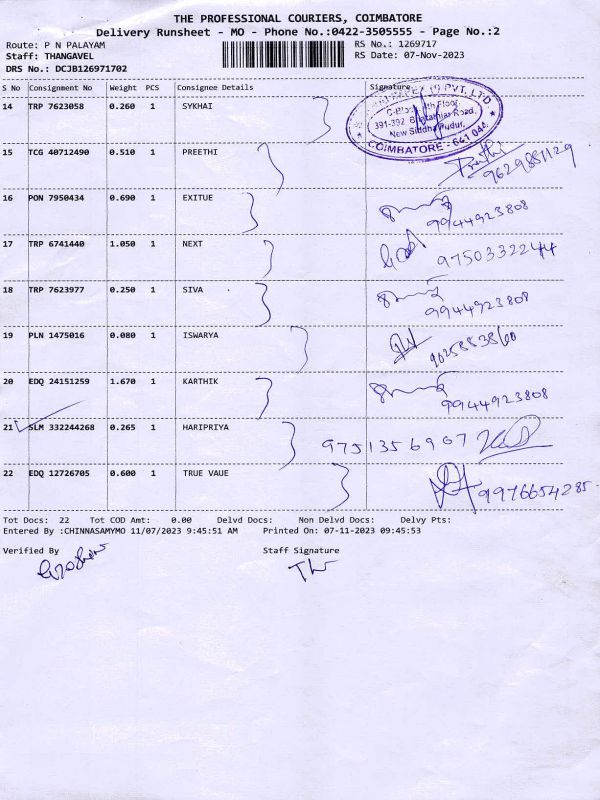 THE PROFESSIONAL COURIERS, COIMBATORE
Delivery Runsheet - MO - Phone No.:0422-3505555 - Page No.:2
Route: P N PALAYAM RS No.: 1269717
Staff: THANGAVEL RS Date: 07-Nov-2023
DRS No.: DCJB126971702
S No Consignment No Weight PCS Consignee Details Signature
14 TRP 7623058 0.260 1 SYKHAI
PVT. LTD
Floor,
391-392, Road,
New Siddha Pudur,
COIMBATORE - 641 044
15 TCG 40712490 0.510 1 PREETHI Preethi
9629881129
16 PON 7950434 0.690 1 EXITUE 9944923808
17 TRP 6741440 1.050 1 NEXT 9750332244
18 TRP 7623977 0.250 1 SIVA 9944923808
19 PLN 1475016 0.080 1 ISWARYA 9025853860
20 EDQ 24151259 1.670 1 KARTHIK 9944923808
21 SLM 332244268 0.265 1 HARIPRIYA 9751356967
22 EDQ 12726705 0.600 1 TRUE VAUE 9976654285
Tot Docs: 22 Tot COD Amt: 0.00 Delvd Docs: Non Delvd Docs: Delvy Pts:
Entered By :CHINNASAMYMO 11/07/2023 9:45:51 AM Printed On: 07-11-2023 09:45:53
Verified By Staff Signature